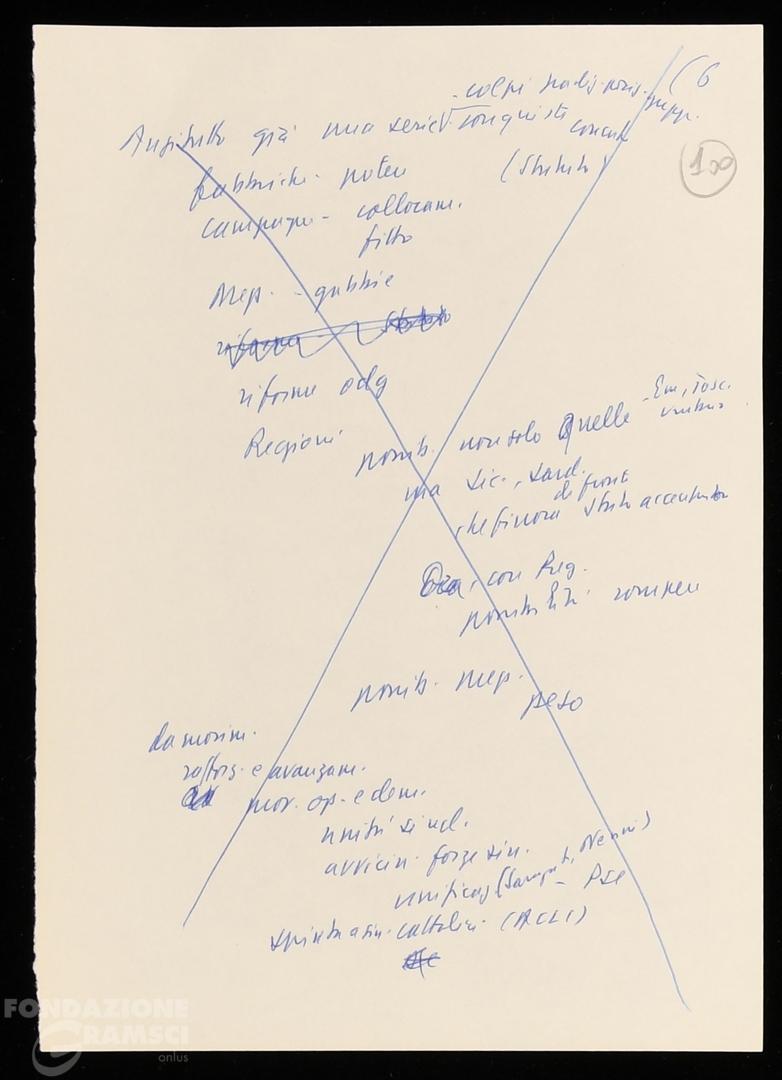 (6
- colpi
Anzitutto già una serie conquiste concrete
100
fabbriche - potere (Statuto)
campagne - collocam.
filtro
Mezz. - gabbie
riforme odg
Regioni possib. non solo quelle - Em, Tosc.
Umbria
ma Sic., Sard.
di fronte
che finora Stato accentrato
Ora, con Reg.
possibilità rompere
possib. mezz.
peso
da mov.
rafforz. e avanzam.
mov. op. e dem.
unità sind.
avvicin. forze sin.
unificaz (Saragat, Nenni) - PSI
spinta a sin. cattolici (ACLI)
FONDAZIONE
GRAMSCI
onlus